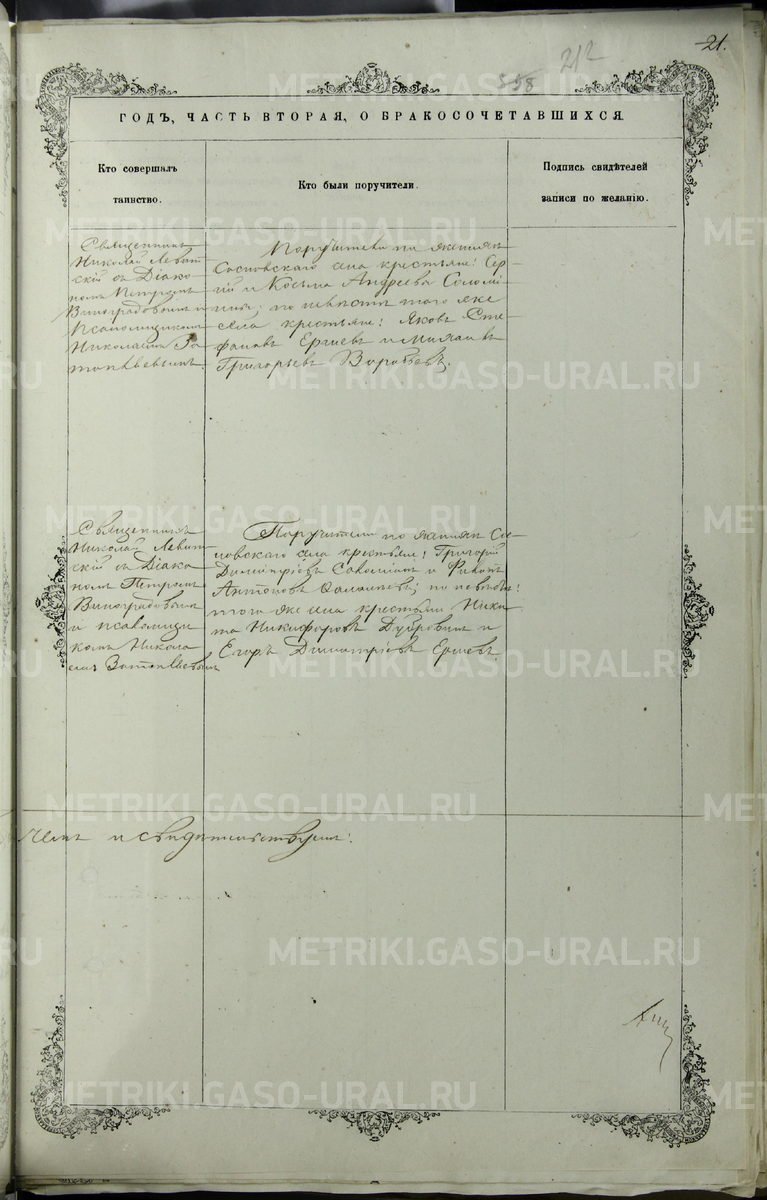 21.
212
558
ГОДЪ, ЧАСТЬ ВТОРАЯ, О БРАКОСОЧЕТАВШИХСЯ.
Кто совершалъ
таинство.
Кто были поручители.
Подпись свидѣтелей
записи по желанію.
Священникъ
Николай Левит
скій съ Діако
номъ Петромъ
Виноградовымъ и
Псаломщикомъ
Николаемъ За
топляевымъ.
Поручители по женихѣ
Сосновскаго села крестьяне: Сер
гій и Косьма Андреевы Соломи
ны; по невѣстѣ того же
села крестьяне: Яковъ Сте
фановъ Ершевъ и Михаилъ
Григорьевъ Воробьевъ.
Священникъ
Николай Левит
скій съ Діако
номъ Петромъ
Виноградовымъ
и псаломщи
комъ Никола
емъ Затопляевымъ
Поручители по женихѣ Сос
новскаго села крестьяне: Григорій
Димитріевъ и
Антоновъ по невѣстѣ:
того же села крестьяне Ники
та Никифоровъ Дубровинъ и
Егоръ Димитріевъ Ершевъ.
и свидѣтельствуемъ:
METRIKI.GASO-URAL.RU